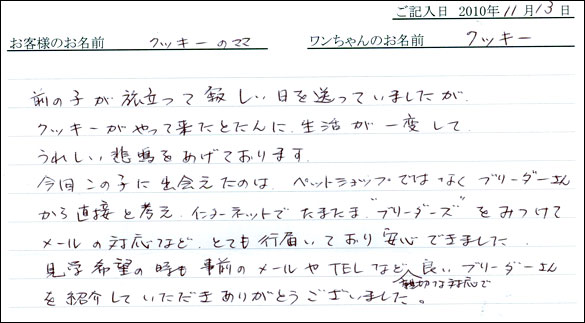 ご記入日 2010年11月13日
お客様のお名前 クッキーのママ ワンちゃんのお名前 クッキー
前の子が旅立って寂しい日を送っていましたが、
クッキーがやって来たとたんに、生活が一変して
うれしい悲鳴をあげております。
今回この子に出会えたのは、ペットショップではなくブリーダーさん
から直接と考え、インターネットでたまたま“ブリーダーズ”をみつけて
メールの対応など、とても行届いており安心できました。
見学希望の時も事前のメールやTELなど、親切な対応で良いブリーダーさん
を紹介していただきありがとうございました。